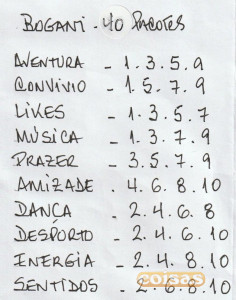 BOGANI - 40 PACOTES
AVENTURA - 1.3.5.9
CONVÍVIO - 1.5.7.9
LIKES - 1.3.5.7
MÚSICA - 1.3.7.9
PRAZER - 3.5.7.9
AMIZADE - 4.6.8.10
DANÇA - 2.4.6.8
DESPORTO - 2.4.6.10
ENERGIA - 2.4.8.10
SENTIDOS - 2.6.8.10
coisas